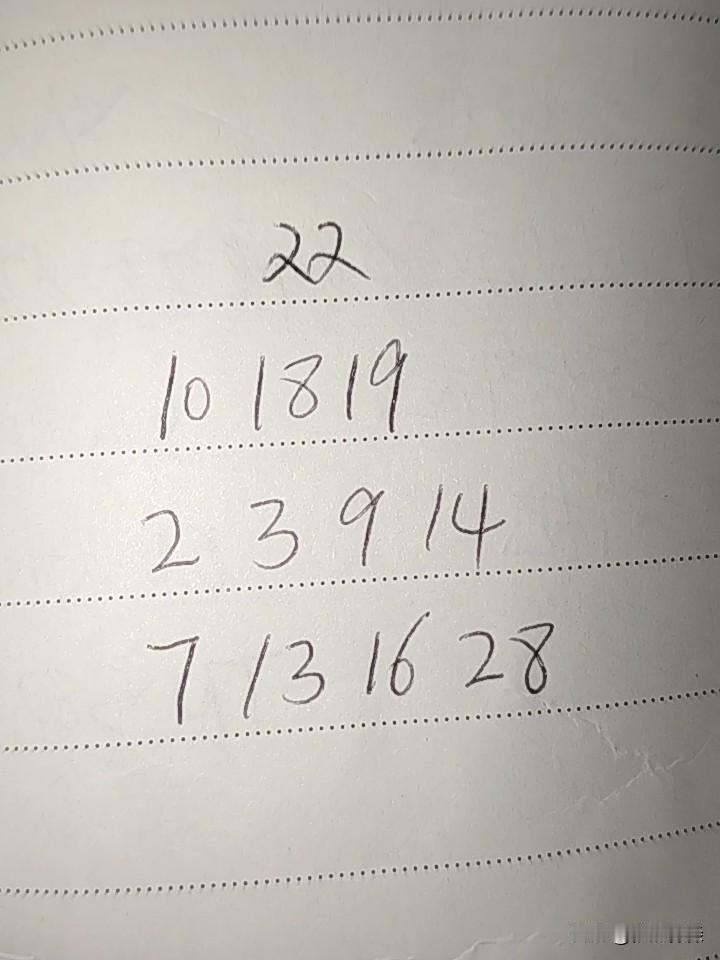 22
10 18 19
2 3 9 14
7 13 16 28